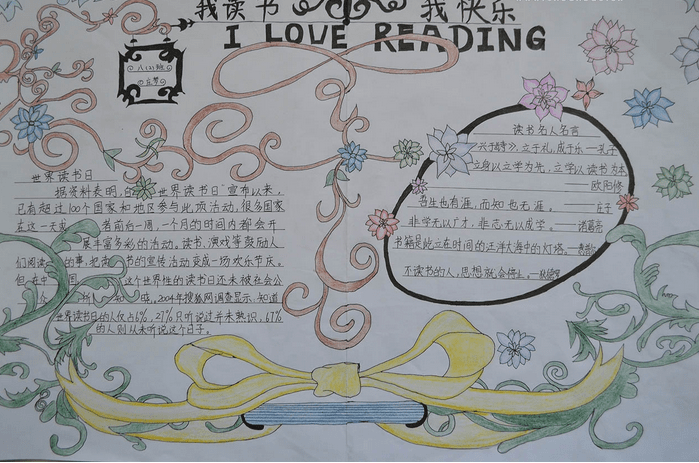 我读书 我快乐
I LOVE READING
八(3)班
世界读书日
据资料表明,自"世界读书日"宣布以来,
已有超过100个国家和地区参与此项活动,很多国家
在这一天或 者前后一周,一个月的时间内都会开
展丰富多彩的活动。读书、演戏等鼓励人
们阅读 的事,把 书的宣传活动变成一场欢乐节庆。
但在中国 这个世界性的读书日还未被社会公
所 2004年搜狐网调查显示,知道
世界读书日的人仅占6%,27%只听说过并未熟识,67%
的人则从未听说这个日子。
读书名人名言
兴于诗》,立于礼,成于乐——孔子
立身以立学为先,立学以读书为本
——欧阳修
吾生也有涯,而知也无涯。——庄子
非学无以广才,非志无以成学。——诸葛亮
书籍是屹立在时间的汪洋大海中的灯塔。
不读书的人,思想就会停止。